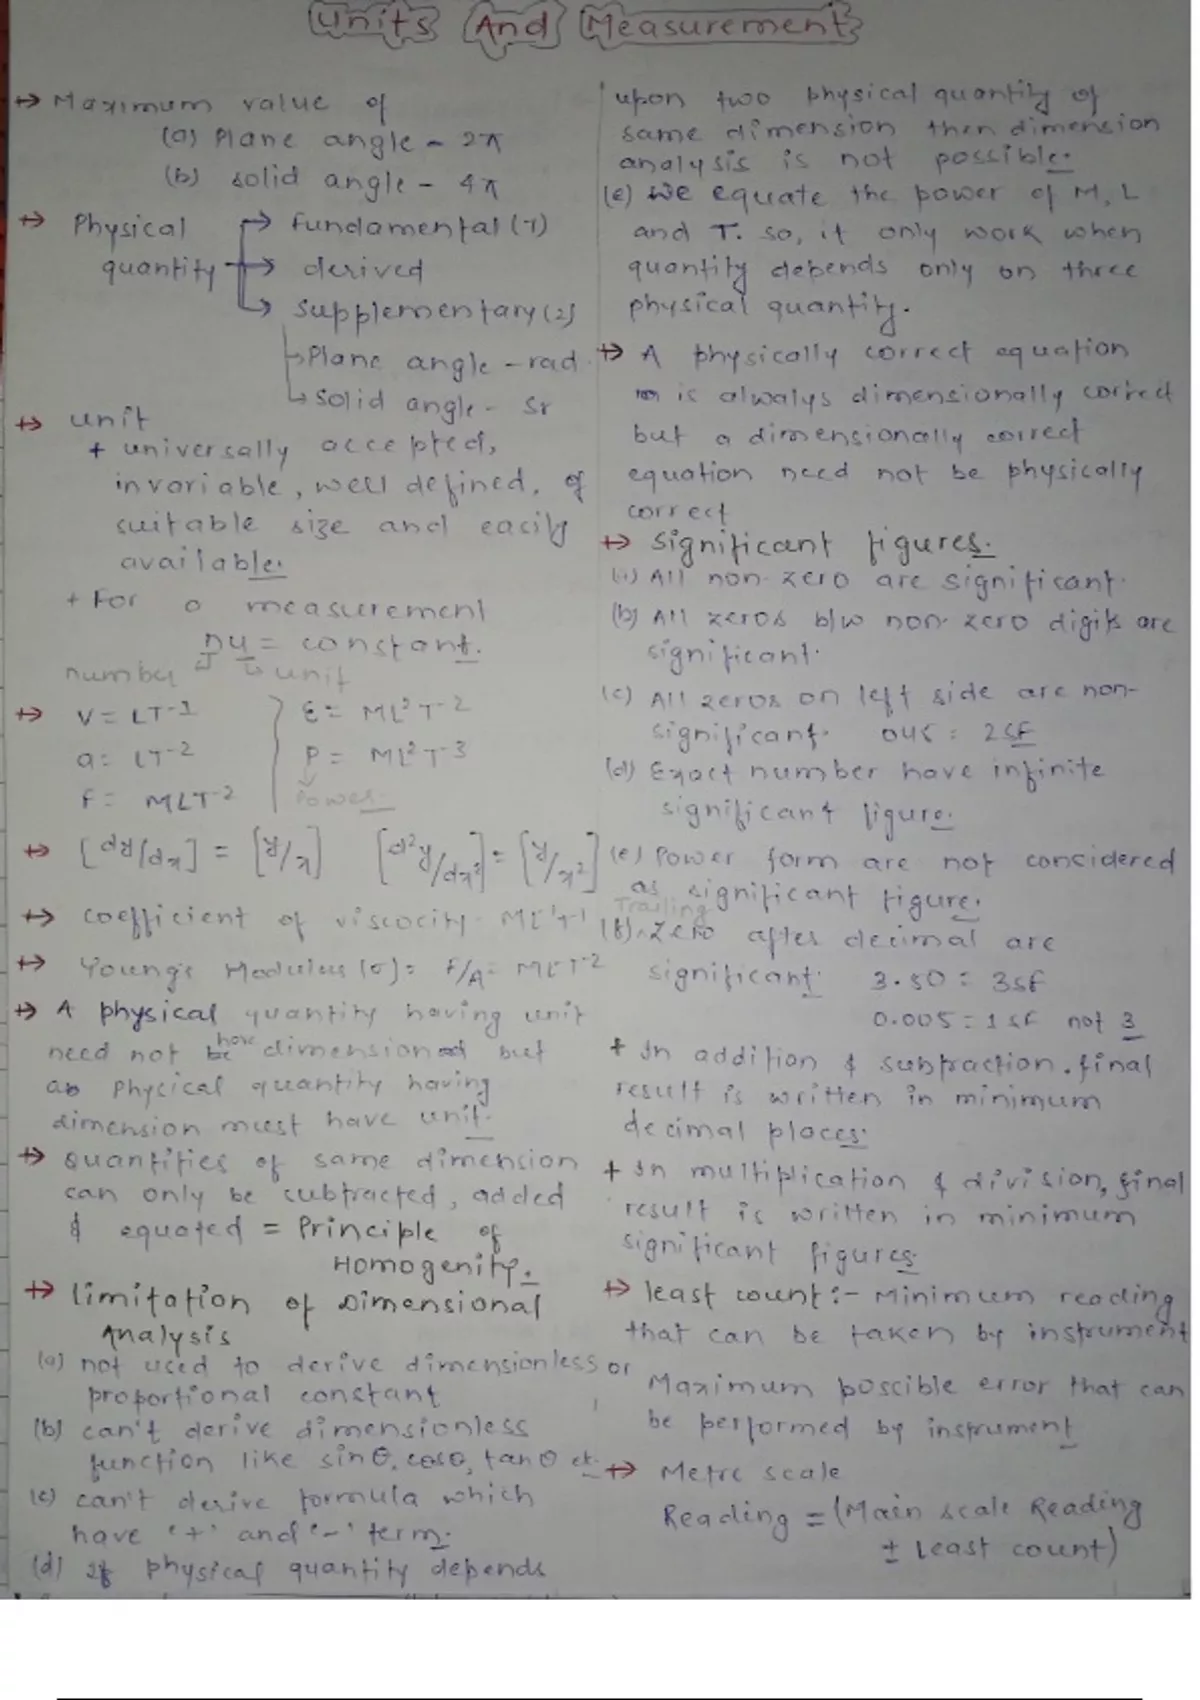 Units And Measurement
→ Maximum value of
(a) Plane angle - 2π
(b) solid angle - 4π
→ Physical quantity → fundamental (7)
→ derived
→ supplementary (2)
→ Plane angle - rad
→ Solid angle - Sr
→ unit
+ universally accepted,
invariable, well defined, of
suitable size and easily
available.
+ For a measurement
nu = constant.
number unit
→ V = LT-1 E = ML²T-2
a = LT-2 P = ML²T-3
F = MLT-2 Power
→ [dy/dx] = [y/x] [d²y/dx²] = [y/x²]
→ coefficient of viscocity - ML-1T-1
→ Young's Modulus (σ) = F/A = ML-1T-2
→ A physical quantity having unit
need not have dimension but
a physical quantity having
dimension must have unit.
→ Quantities of same dimension
can only be subtracted, added
& equated = Principle of
Homogenity.
→ limitation of Dimensional
Analysis
(a) not used to derive dimensionless
proportional constant
(b) can't derive dimensionless
function like sinθ, cosθ, tanθ etc.
(c) can't derive formula which
have '+' and '-' term.
(d) If physical quantity depends
upon two physical quantity of
same dimension then dimension
analysis is not possible.
(e) We equate the power of M, L
and T. so, it only work when
quantity depends only on three
physical quantity.
→ A physically correct equation
is alwalys dimensionally correct
but a dimensionally correct
equation need not be physically
correct
→ significant figures.
(a) All non-zero are significant.
(b) All zeros b/w non-zero digits are
significant.
(c) All zeros on left side are non-
significant. 045 = 2SF
(d) Exact number have infinite
significant figure.
(e) Power form are not considered
as significant figure.
(f) Trailing Zero after decimal are
significant. 3.50 = 3SF
0.005 = 1SF not 3
+ In addition & subtraction, final
result is written in minimum
decimal places.
+ In multiplication & division, final
result is written in minimum
significant figures.
→ least count :- Minimum reading
that can be taken by instrument
or Maximum possible error that can
be performed by instrument
→ Metre scale
Reading = (Main scale Reading
± Least count)